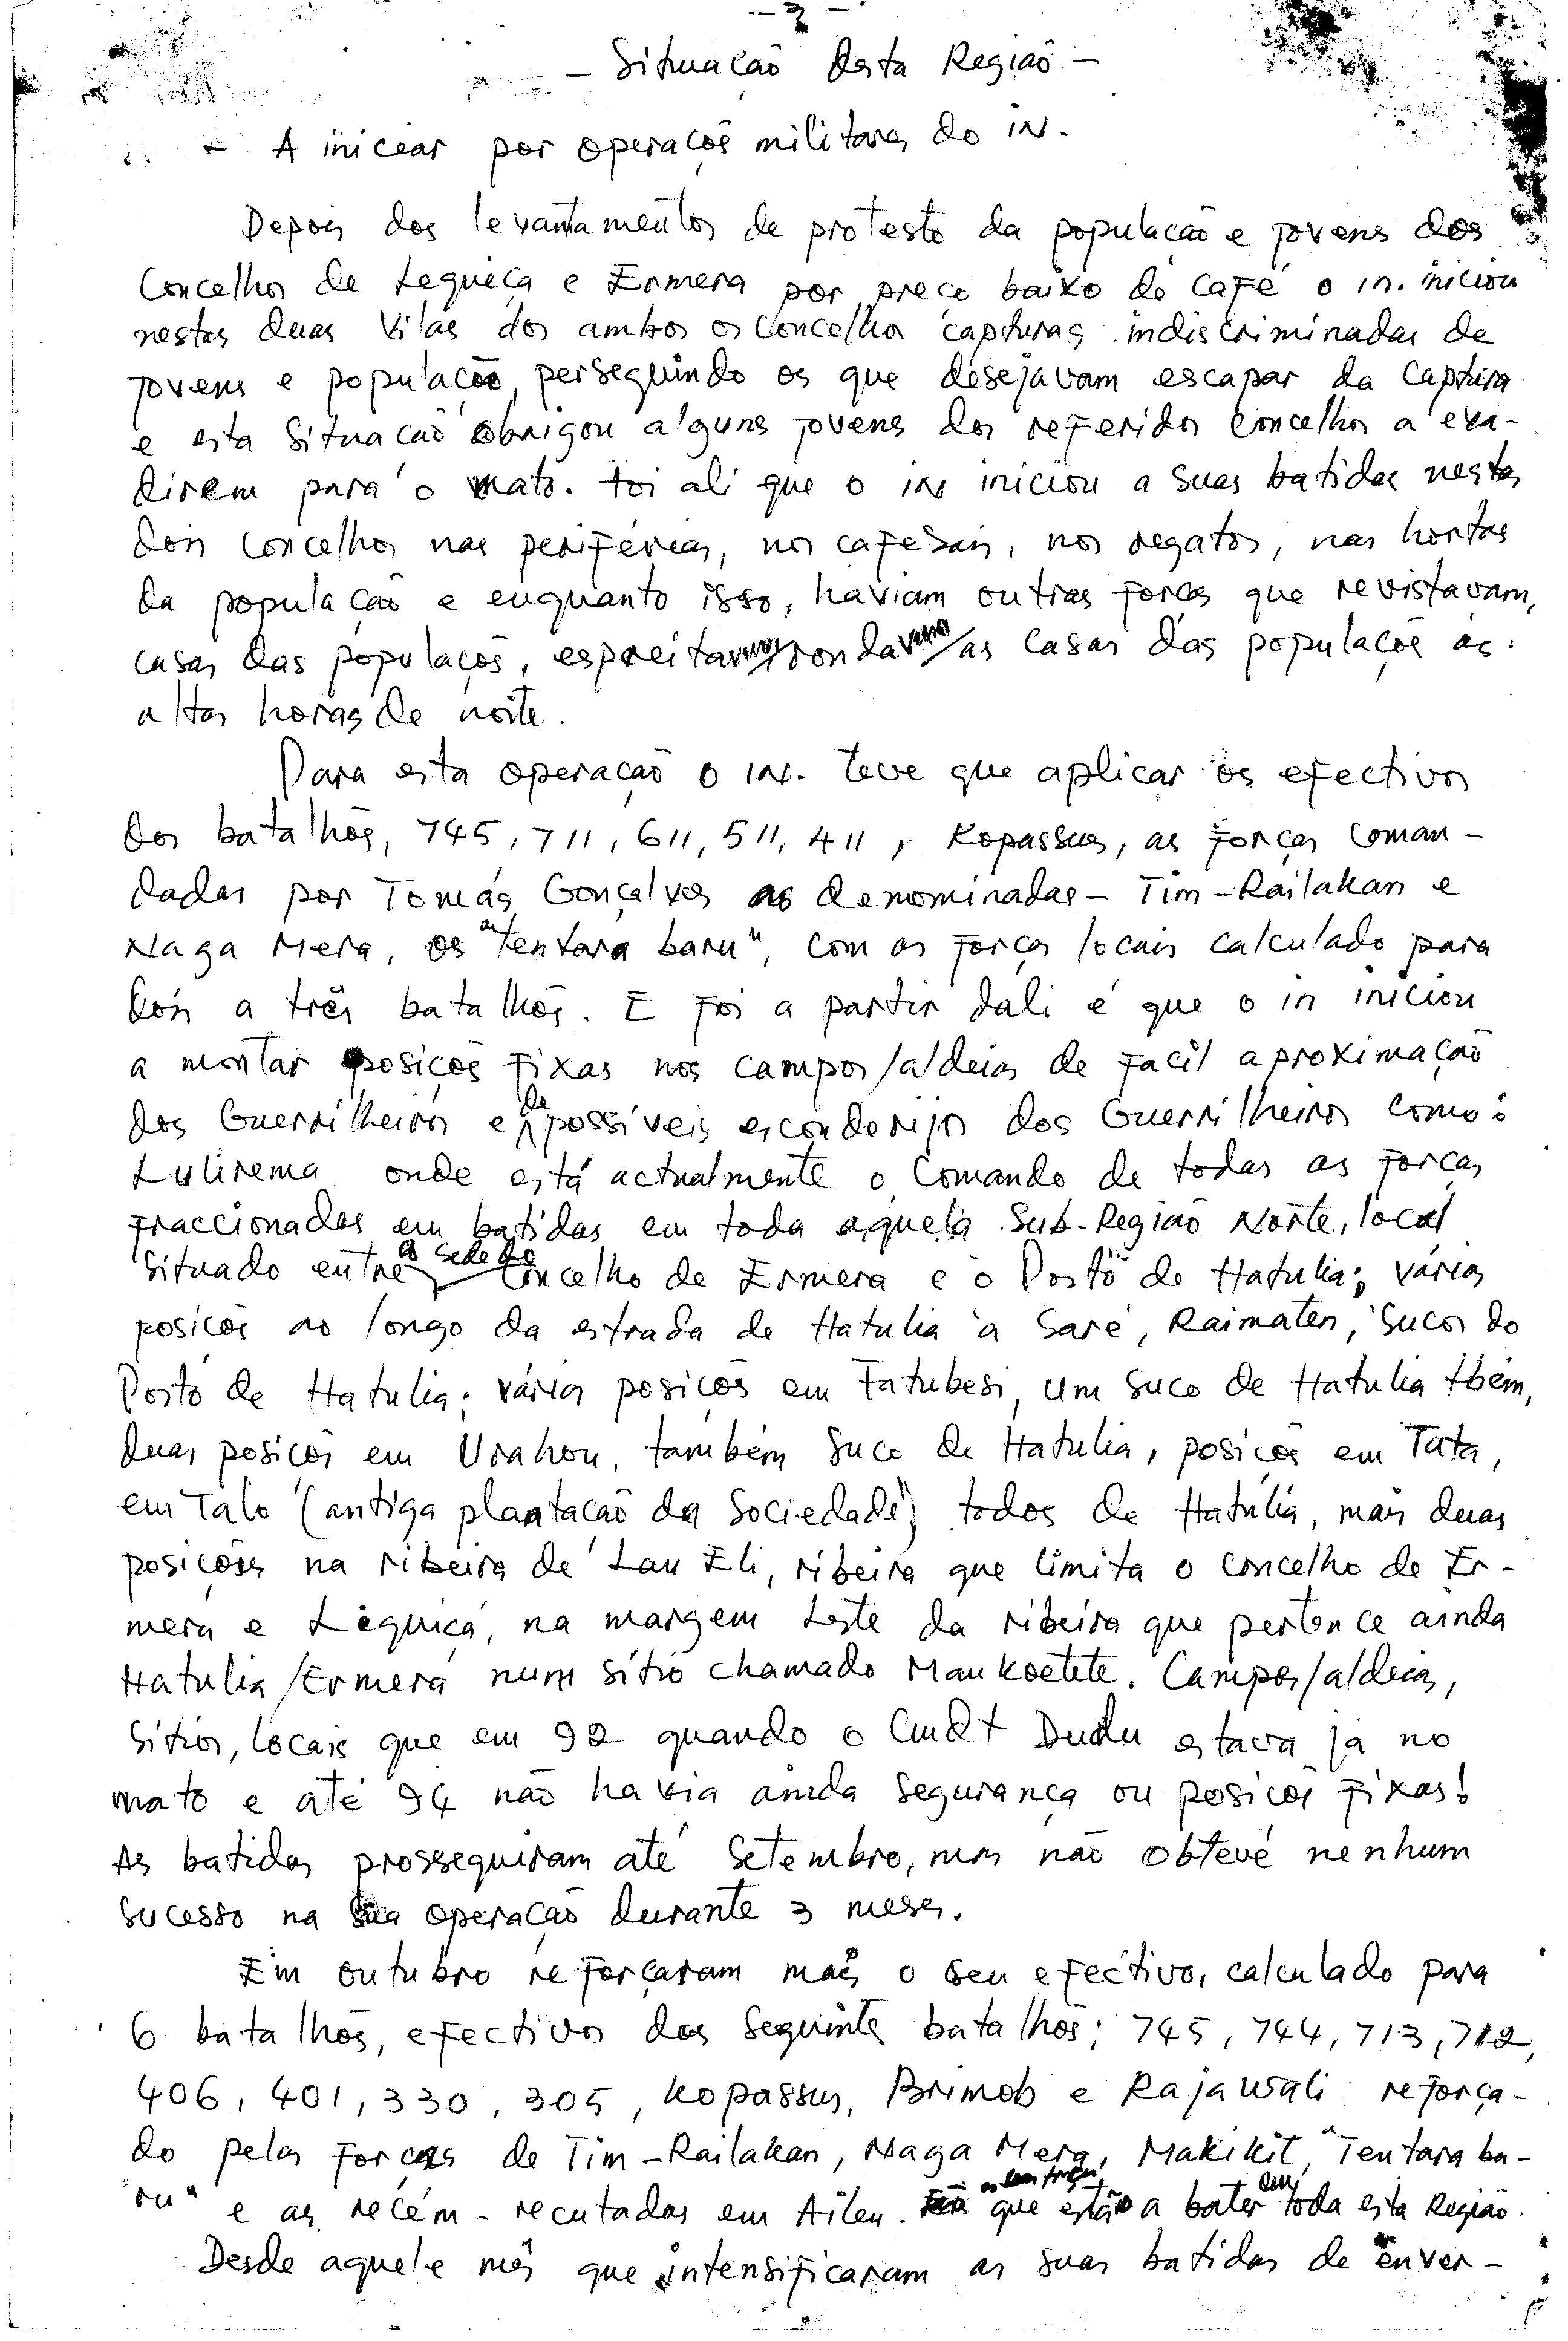 - 2 -
- Situação desta Região -
- A iniciar por operaçõs militares do in.
Depois dos levantamentos de protesto da população e jovens dos
Concelhos de Lequiça e Ermera por preço baixo do café o in. iniciou
nestas duas Vilas dos ambos os Concelhos capturas indiscriminadas de
jovens e população, perseguindo os que desejavam escapar da captura
e esta situação obrigou alguns jovens dos referidos Concelhos a eva-
direm para o mato. Foi ali que o in iniciou a suas batidas nestes
dois Concelhos nas periférias, nos cafesais, nos regatos, nas hortas
da população e enquanto isso, haviam outras forças que revistavam,
casas das populaçõs, espreitavam/rondavam/as casas das populaçõs às
altas horas de noite.
Para esta operação o in. teve que aplicar os efectivos
dos batalhõs, 745, 711, 611, 511, 411, Kopassus, as forças coman-
dadas por Tomás Gonçalves as denominadas - Tim-Railakan e
Naga Mera, os "tentara baru", com as forças locais calculado para
dois a três batalhõs. E foi a partir dali é que o in iniciou
a montar posiçõs fixas nos campos/aldeias de facil aproximação
dos Guerrilheiros e de possíveis esconderijos dos Guerrilheiros como:
Lulirema onde está actualmente o Comando de todas as forças
fraccionadas em batidas em toda aquela Sub-Região Norte, local
situado entre a sede do Concelho de Ermera e o Posto de Hatulia; várias
posiçõs ao longo da estrada de Hatulia à Saré, Raimaten, Sucos do
Posto de Hatulia; várias posiçõs em Fatubesi, um suco de Hatulia tbém,
duas posiçõs em Urahou, também suco de Hatulia, posiçõs em Tata,
em Talo (antiga plantação da Sociedade) todos de Hatúlia, mais duas
posiçõs na ribeira de Lau Eli, ribeira que limita o concelho de Er-
mera e Lequiçá, na margem Leste da ribeira que pertence ainda
Hatulia/Ermera num sítio chamado Maukoetete. Campos/aldeias,
sitios, locais que em 92 quando o Cmdt Dudu estava já no
mato e até 94 não havia ainda segurança ou posiçõs fixas!
As batidas prosseguiram até Setembro, mas não obteve nenhum
sucesso na sua operação durante 3 meses.
Em outubro reforçaram mais o seu efectivo, calculado para
6 batalhõs, efectivos dos seguintes batalhõs; 745, 744, 713, 712,
406, 401, 330, 305, Kopassus, Brimob e Rajawali reforça-
do pelas forças de Tim-Railakan, Naga Mera, Makikit, "Tentara ba-
ru" e as recém-recutadas em Aileu. que estão a bater em toda esta Região.
Desde aquele mês que intensificaram as suas batidas de enver-